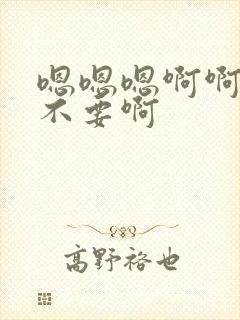 嗯嗯嗯啊啊
不要啊
高野裕也